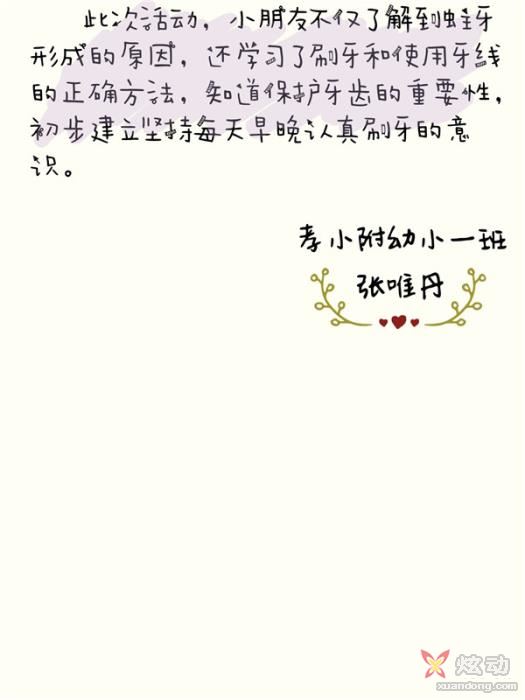 此次活动，小朋友不仅了解到蛀牙
形成的原因，还学习了刷牙和使用牙线
的正确方法，知道保护牙齿的重要性，
初步建立坚持每天早晚认真刷牙的意
识。
孝小附幼小一班
张唯丹
炫动
xuandong.com